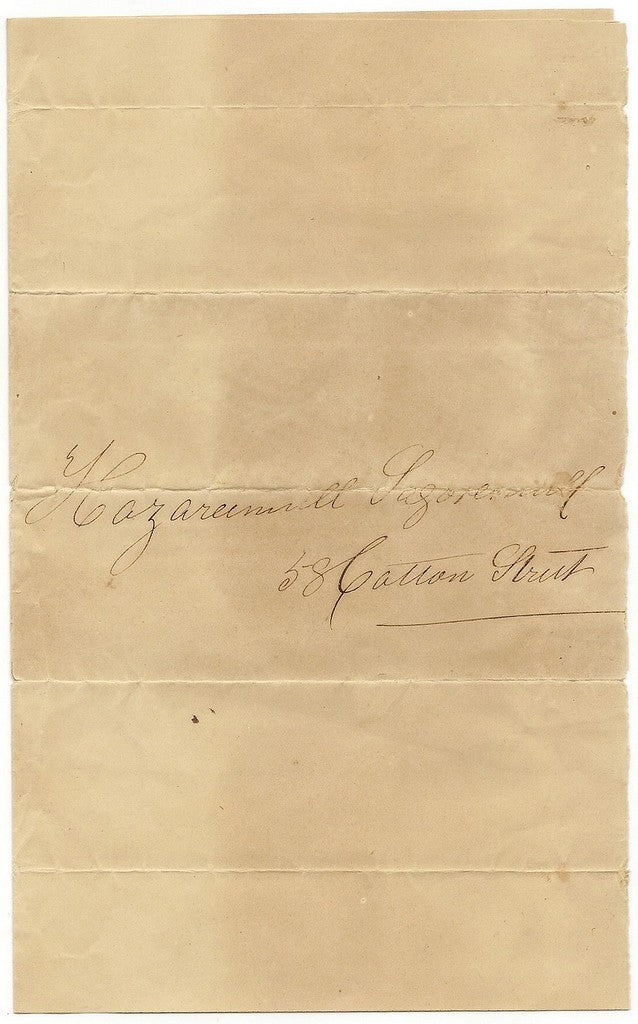 Hazareemull Sagoremull
58 Cotton Street